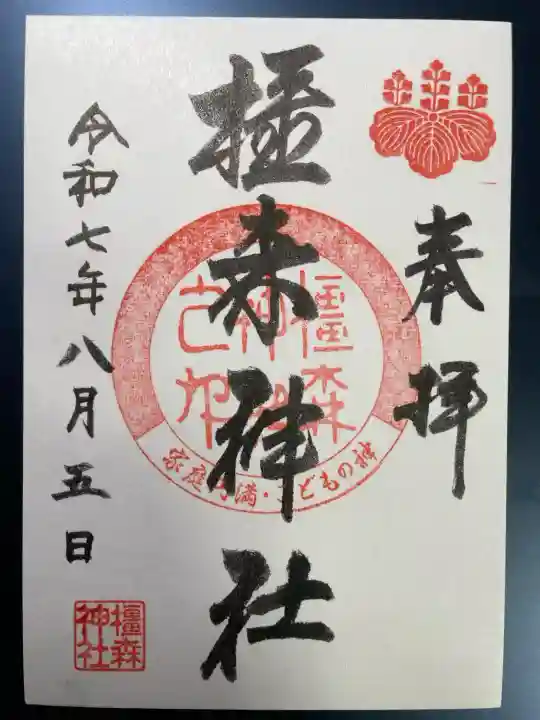 奉拝
橿森神社
橿森神社之印
家庭円満・こどもの神
令和七年八月五日
橿森神社